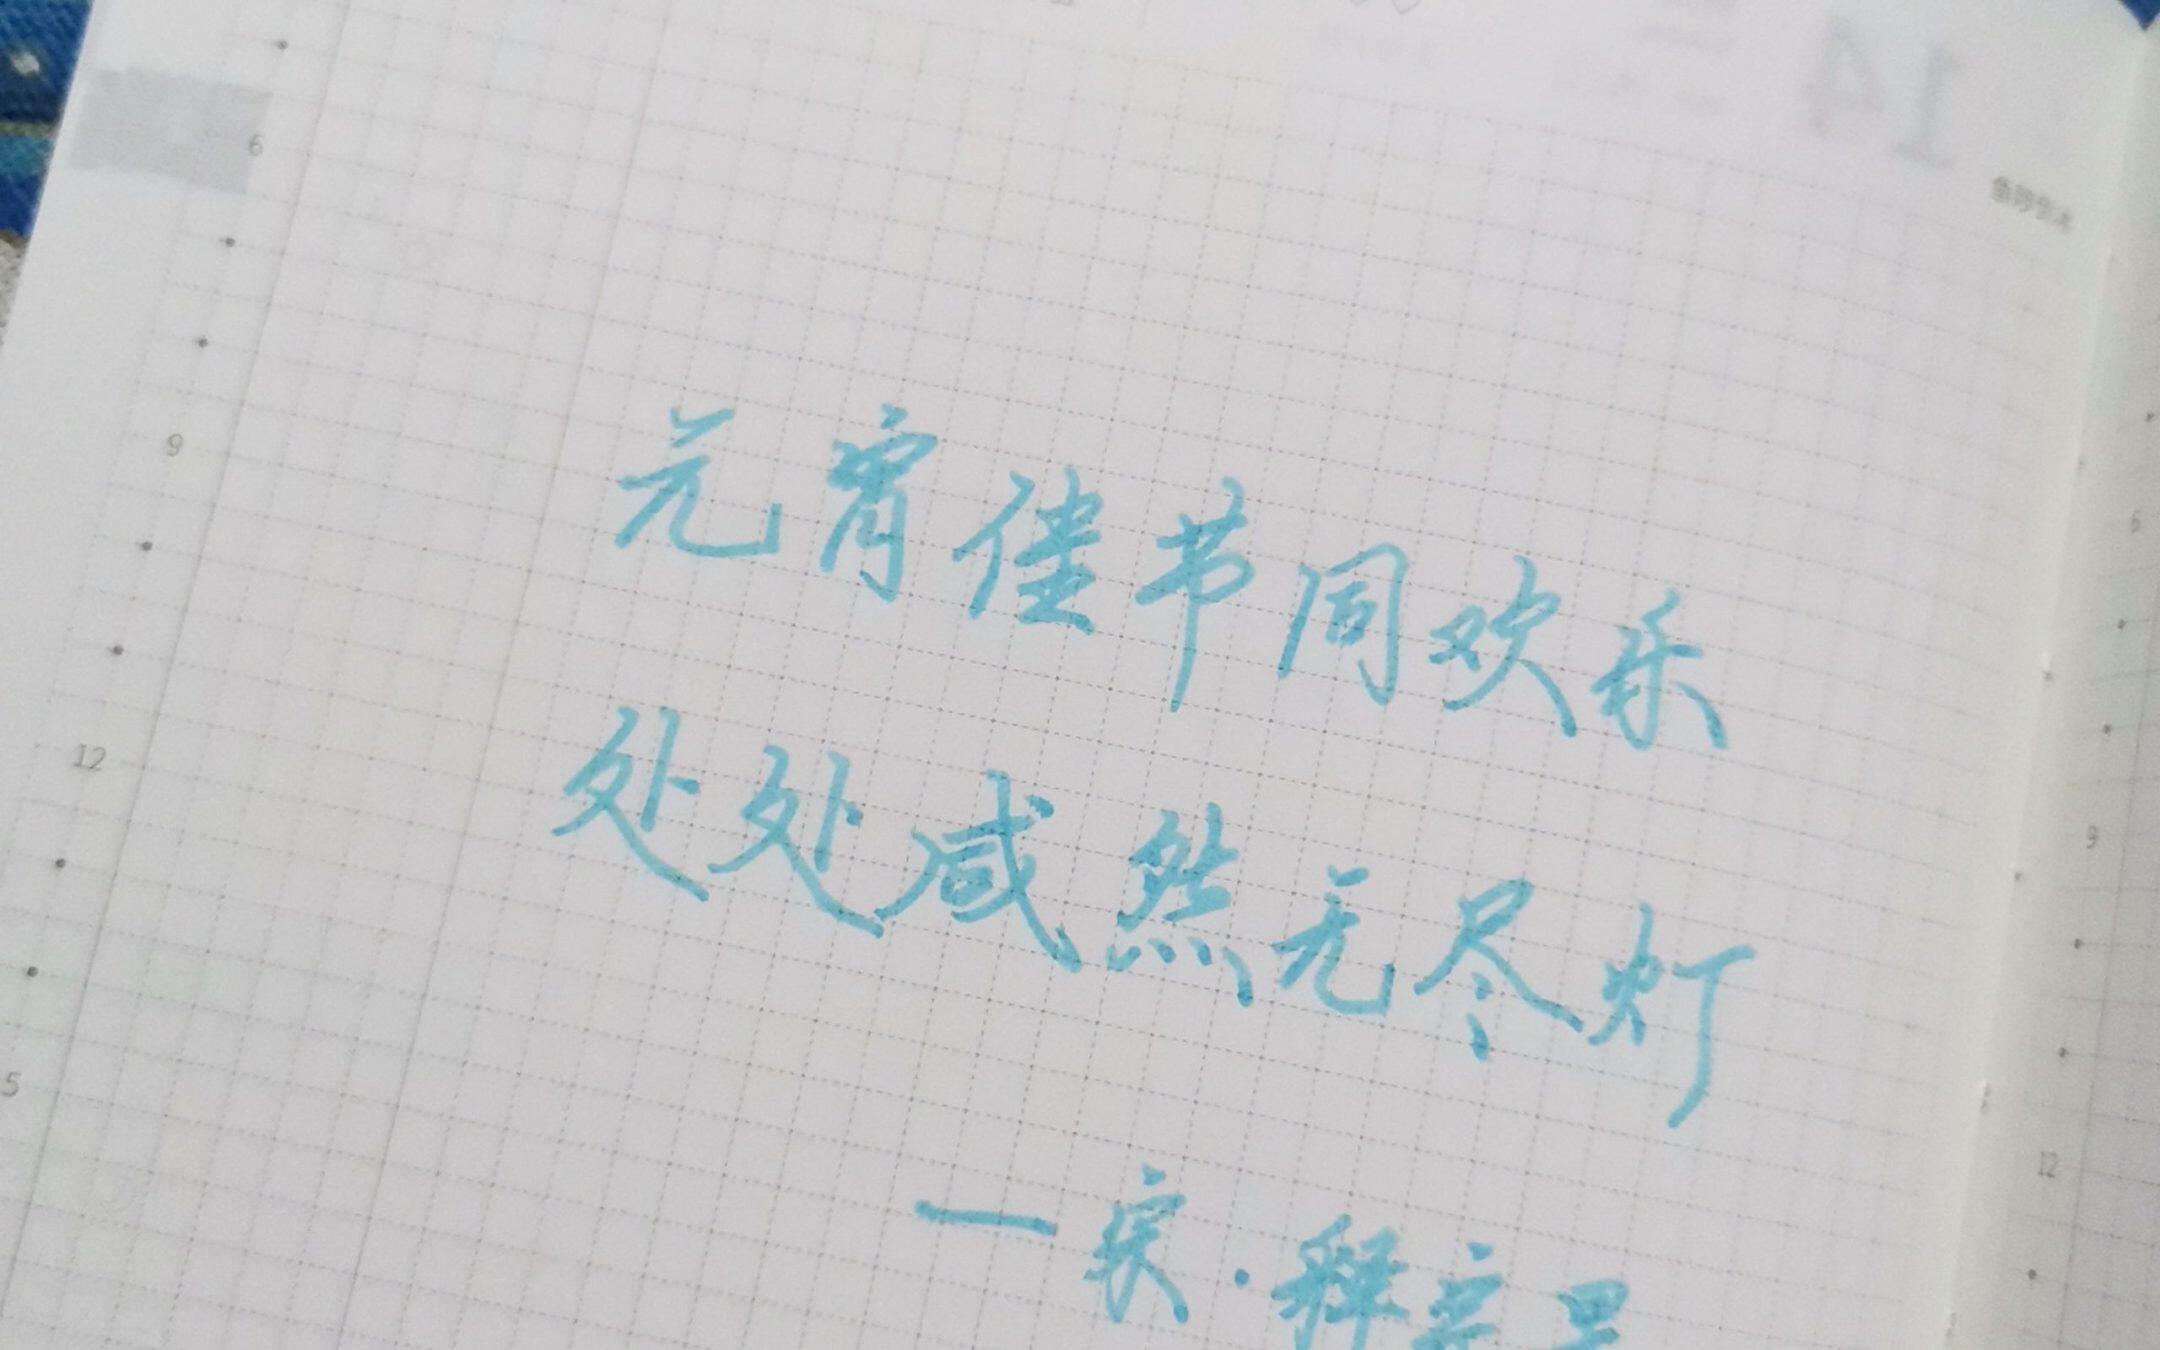 元宵佳节同欢乐
处处咸然无尽灯
一宋·释
14
6
9
12
5
6
9
12